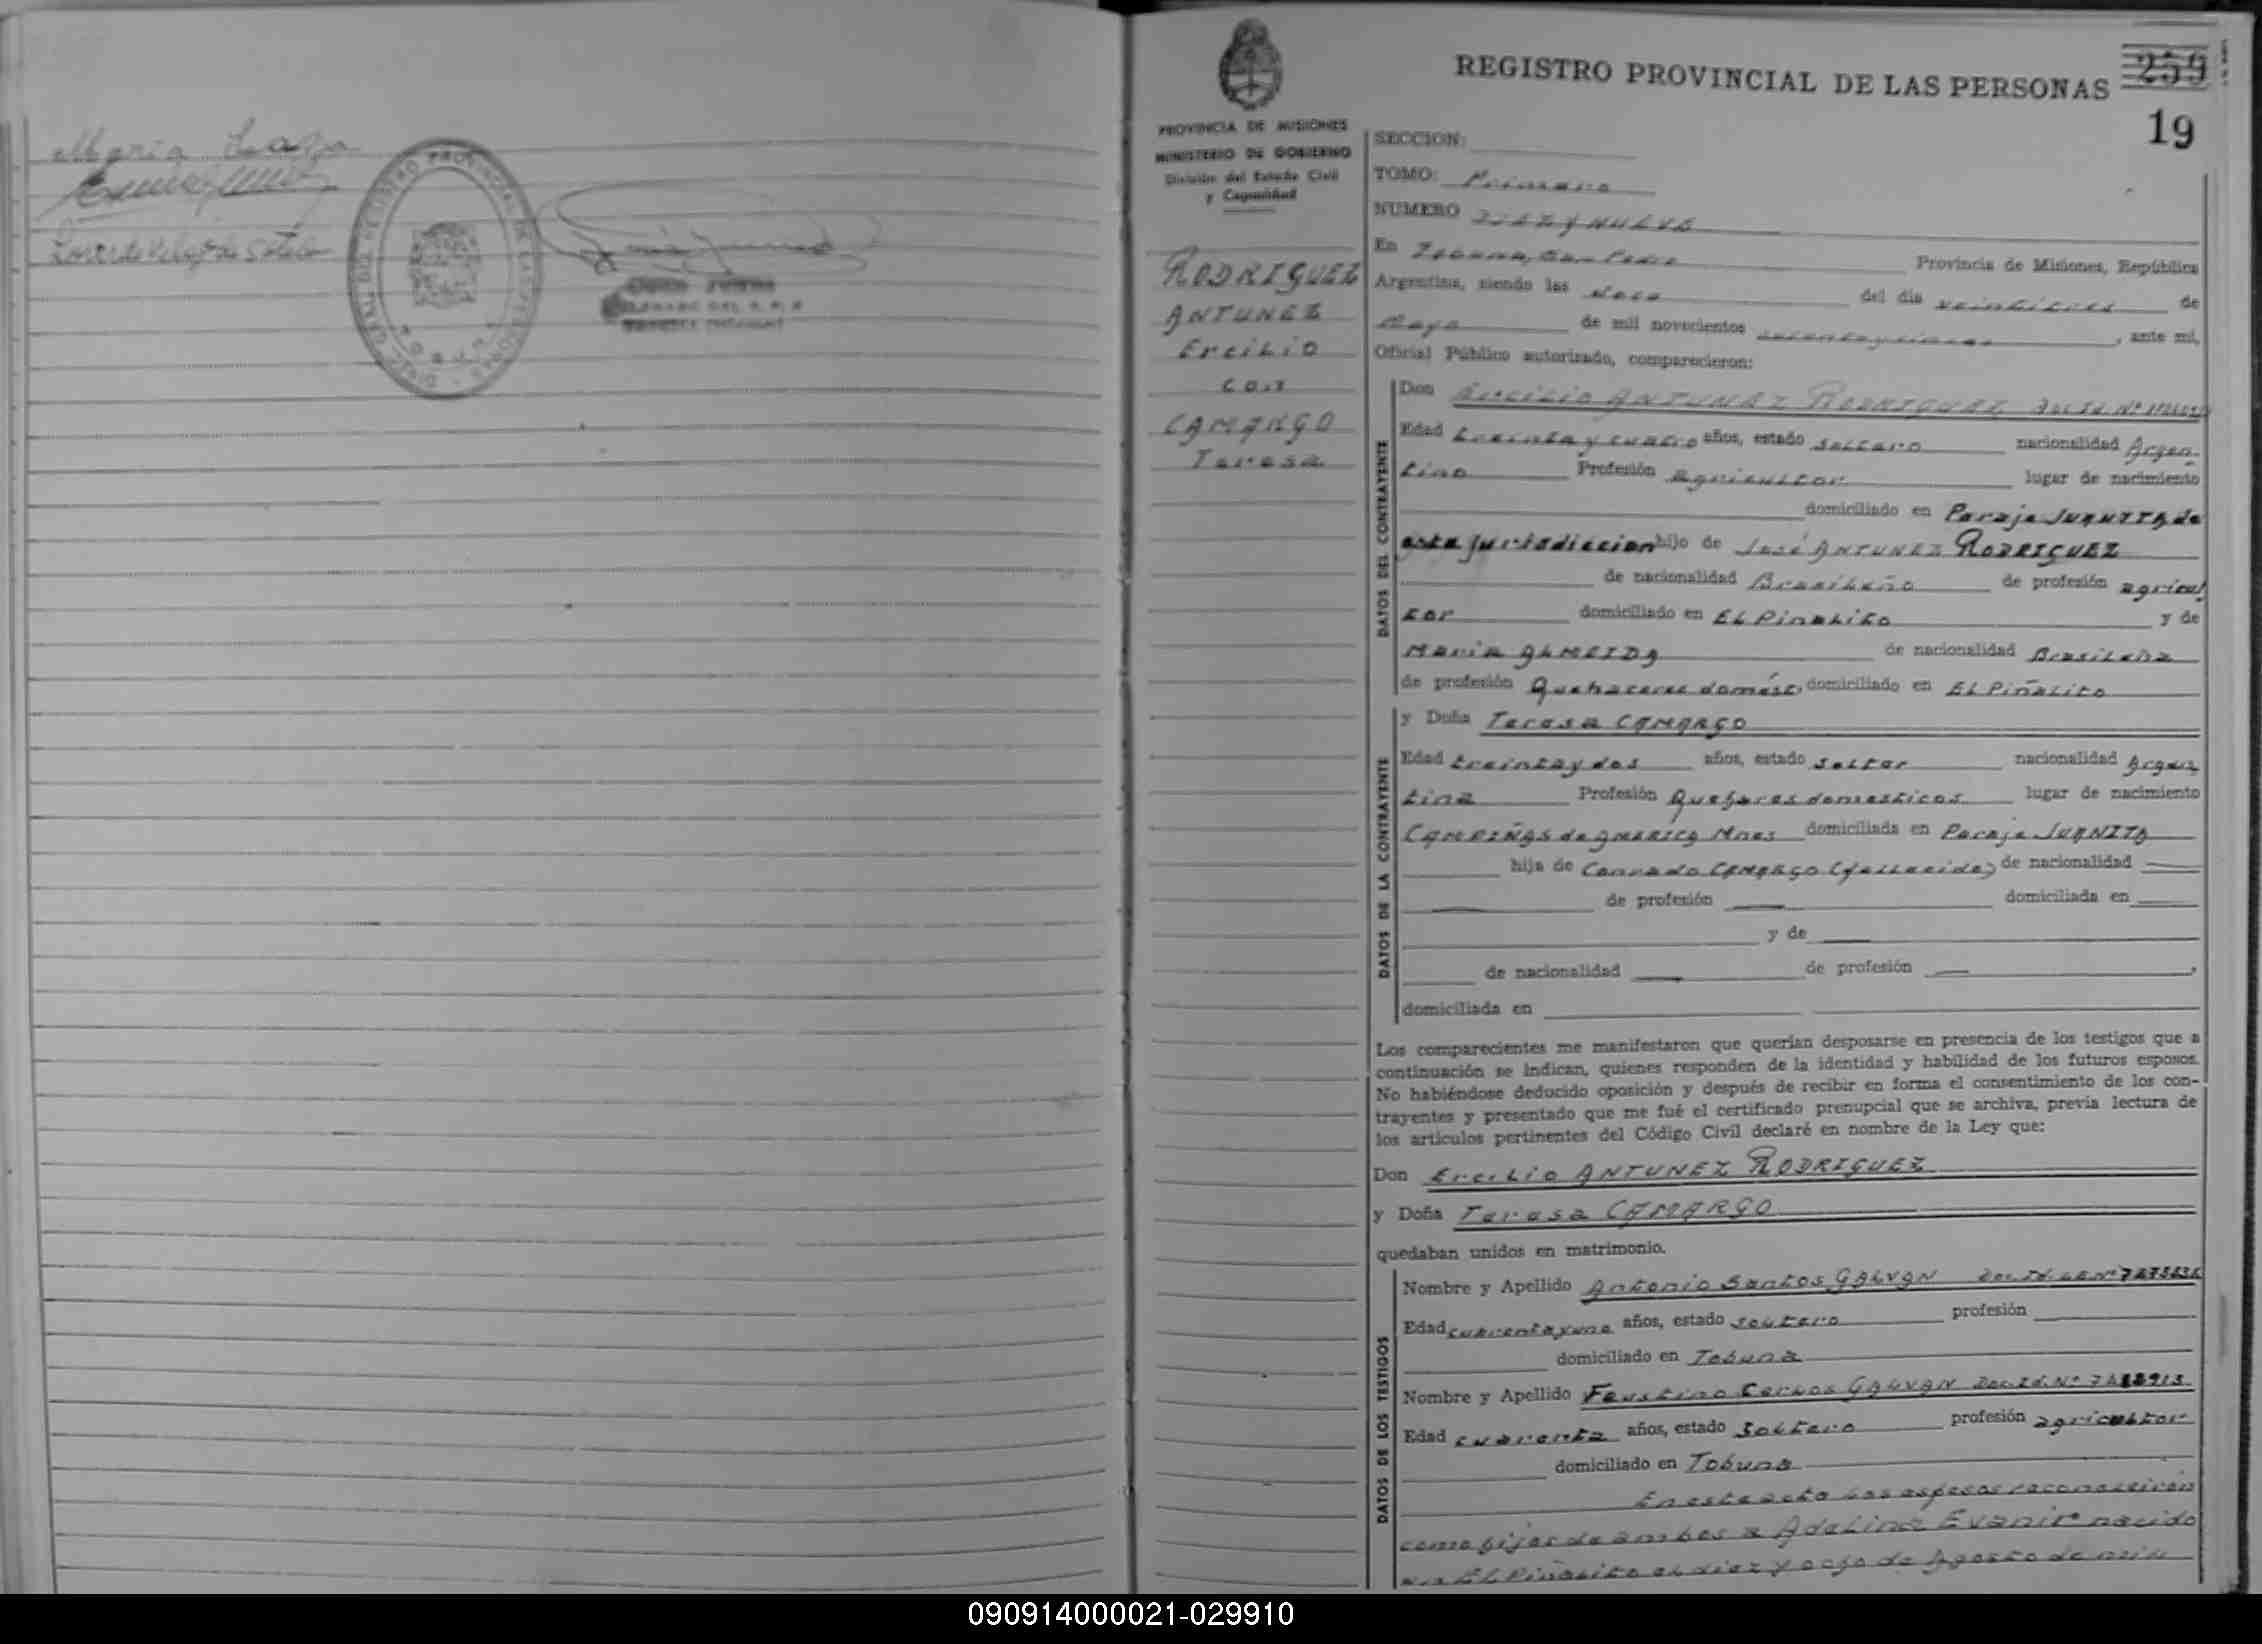 Maria
REGISTRO PROVINCIAL DE LAS PERSONAS
259
19
PROVINCIA DE MISIONES
MINISTERIO DE GOBIERNO
División del Estado Civil
y Capacidad
RODRIGUEZ
ANTUNEZ
Ercilio
con
CAMARGO
Teresa
SECCION:
TOMO: Primero
NUMERO DIEZ y NUEVE
En Tobuna, San Pedro Provincia de Misiones, República
Argentina, siendo las doce del día veintitres de
Mayo de mil novecientos , ante mi,
Oficial Público autorizado, comparecieron:
DATOS DEL CONTRAYENTE
Don Ercilio ANTUNEZ RODRIGUEZ Doc Id. Nº
Edad treinta y cuatro años, estado soltero nacionalidad Argen-
tino Profesión agricultor lugar de nacimiento
domiciliado en Paraje JUANITA de
esta jurisdiccion hijo de José ANTUNEZ RODRIGUEZ
de nacionalidad Brasileño de profesión agricul
tor domiciliado en El Piñalito y de
Maria ALMEIDA de nacionalidad Brasileña
de profesión Quehaceres domést. domiciliado en El Piñalito
DATOS DE LA CONTRAYENTE
y Doña Teresa CAMARGO
Edad treinta y dos años, estado solter nacionalidad Argen
tina Profesión Quehares domesticos lugar de nacimiento
CAMPIÑAS de AMERICA Mnes domiciliada en Paraje JUANITA
hija de Conrado CAMARGO (fallecido) de nacionalidad
de profesión domiciliada en
y de
de nacionalidad de profesión ,
domiciliada en
Los comparecientes me manifestaron que querían desposarse en presencia de los testigos que a
continuación se indican, quienes responden de la identidad y habilidad de los futuros esposos.
No habiéndose deducido oposición y después de recibir en forma el consentimiento de los con-
trayentes y presentado que me fué el certificado prenupcial que se archiva, previa lectura de
los artículos pertinentes del Código Civil declaré en nombre de la Ley que:
Don Ercilio ANTUNEZ RODRIGUEZ
y Doña Teresa CAMARGO
quedaban unidos en matrimonio.
DATOS DE LOS TESTIGOS
Nombre y Apellido Antonio Santos GALVAN Doc. Id. L.E. Nº
Edad cuarenta y uno años, estado soltero profesión
domiciliado en Tobuna
Nombre y Apellido Faustino Carlos GALVAN Doc. Id. Nº
Edad cuarenta años, estado soltero profesión agricultor
domiciliado en Tobuna
En este acto los esposos reconocieron
como hijos de ambos a Adelina Evanir nacido
en El Piñalito el diez y ocho de Agosto de mil
090914000021-029910